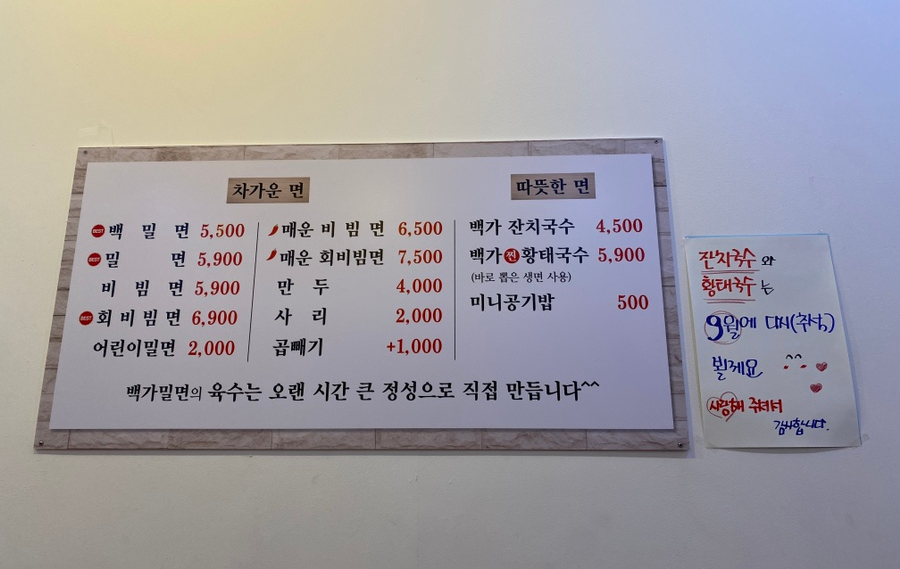 차가운 면
BEST 백 밀 면 5,500
BEST 밀 면 5,900
비 빔 면 5,900
BEST 회 비 빔 면 6,900
어린이밀면 2,000
매운 비 빔 면 6,500
매운 회비빔면 7,500
만 두 4,000
사 리 2,000
곱빼기 +1,000
따뜻한 면
백가 잔치국수 4,500
백가 찐 황태국수 5,900
(바로 뽑은 생면 사용)
미니공기밥 500
백가밀면의 육수는 오랜 시간 큰 정성으로 직접 만듭니다^^
잔치국수 와
황태국수 는
9월에 다시(추석)
뵐게요 ^^
사랑해 주셔서
감사합니다.